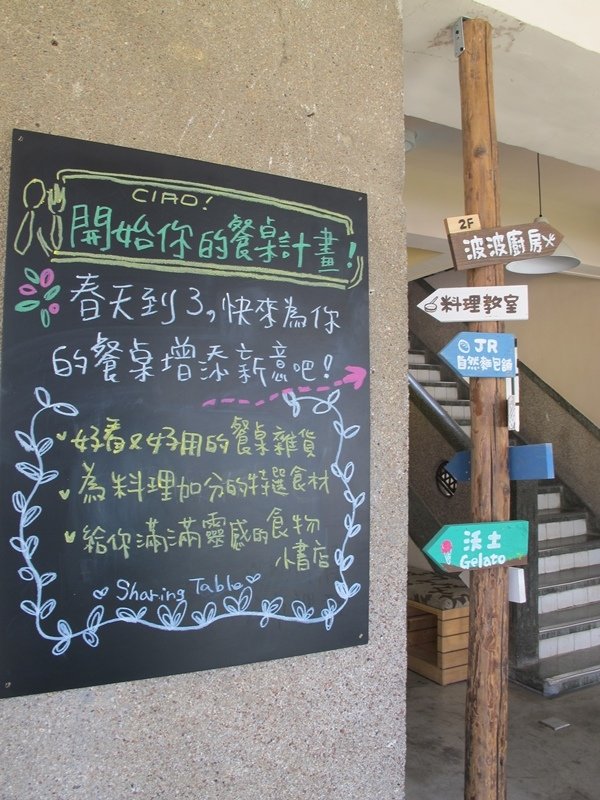 CIAO!
開始你的餐桌計畫!
春天到了,快來為你
的餐桌增添新意吧!
好看又好用的餐桌雜貨
為料理加分的特選食材
給你滿滿靈感的食物
小書店
Sharing Table
2F
波波廚房
料理教室
JR
自然麵包舖
沃土
Gelato